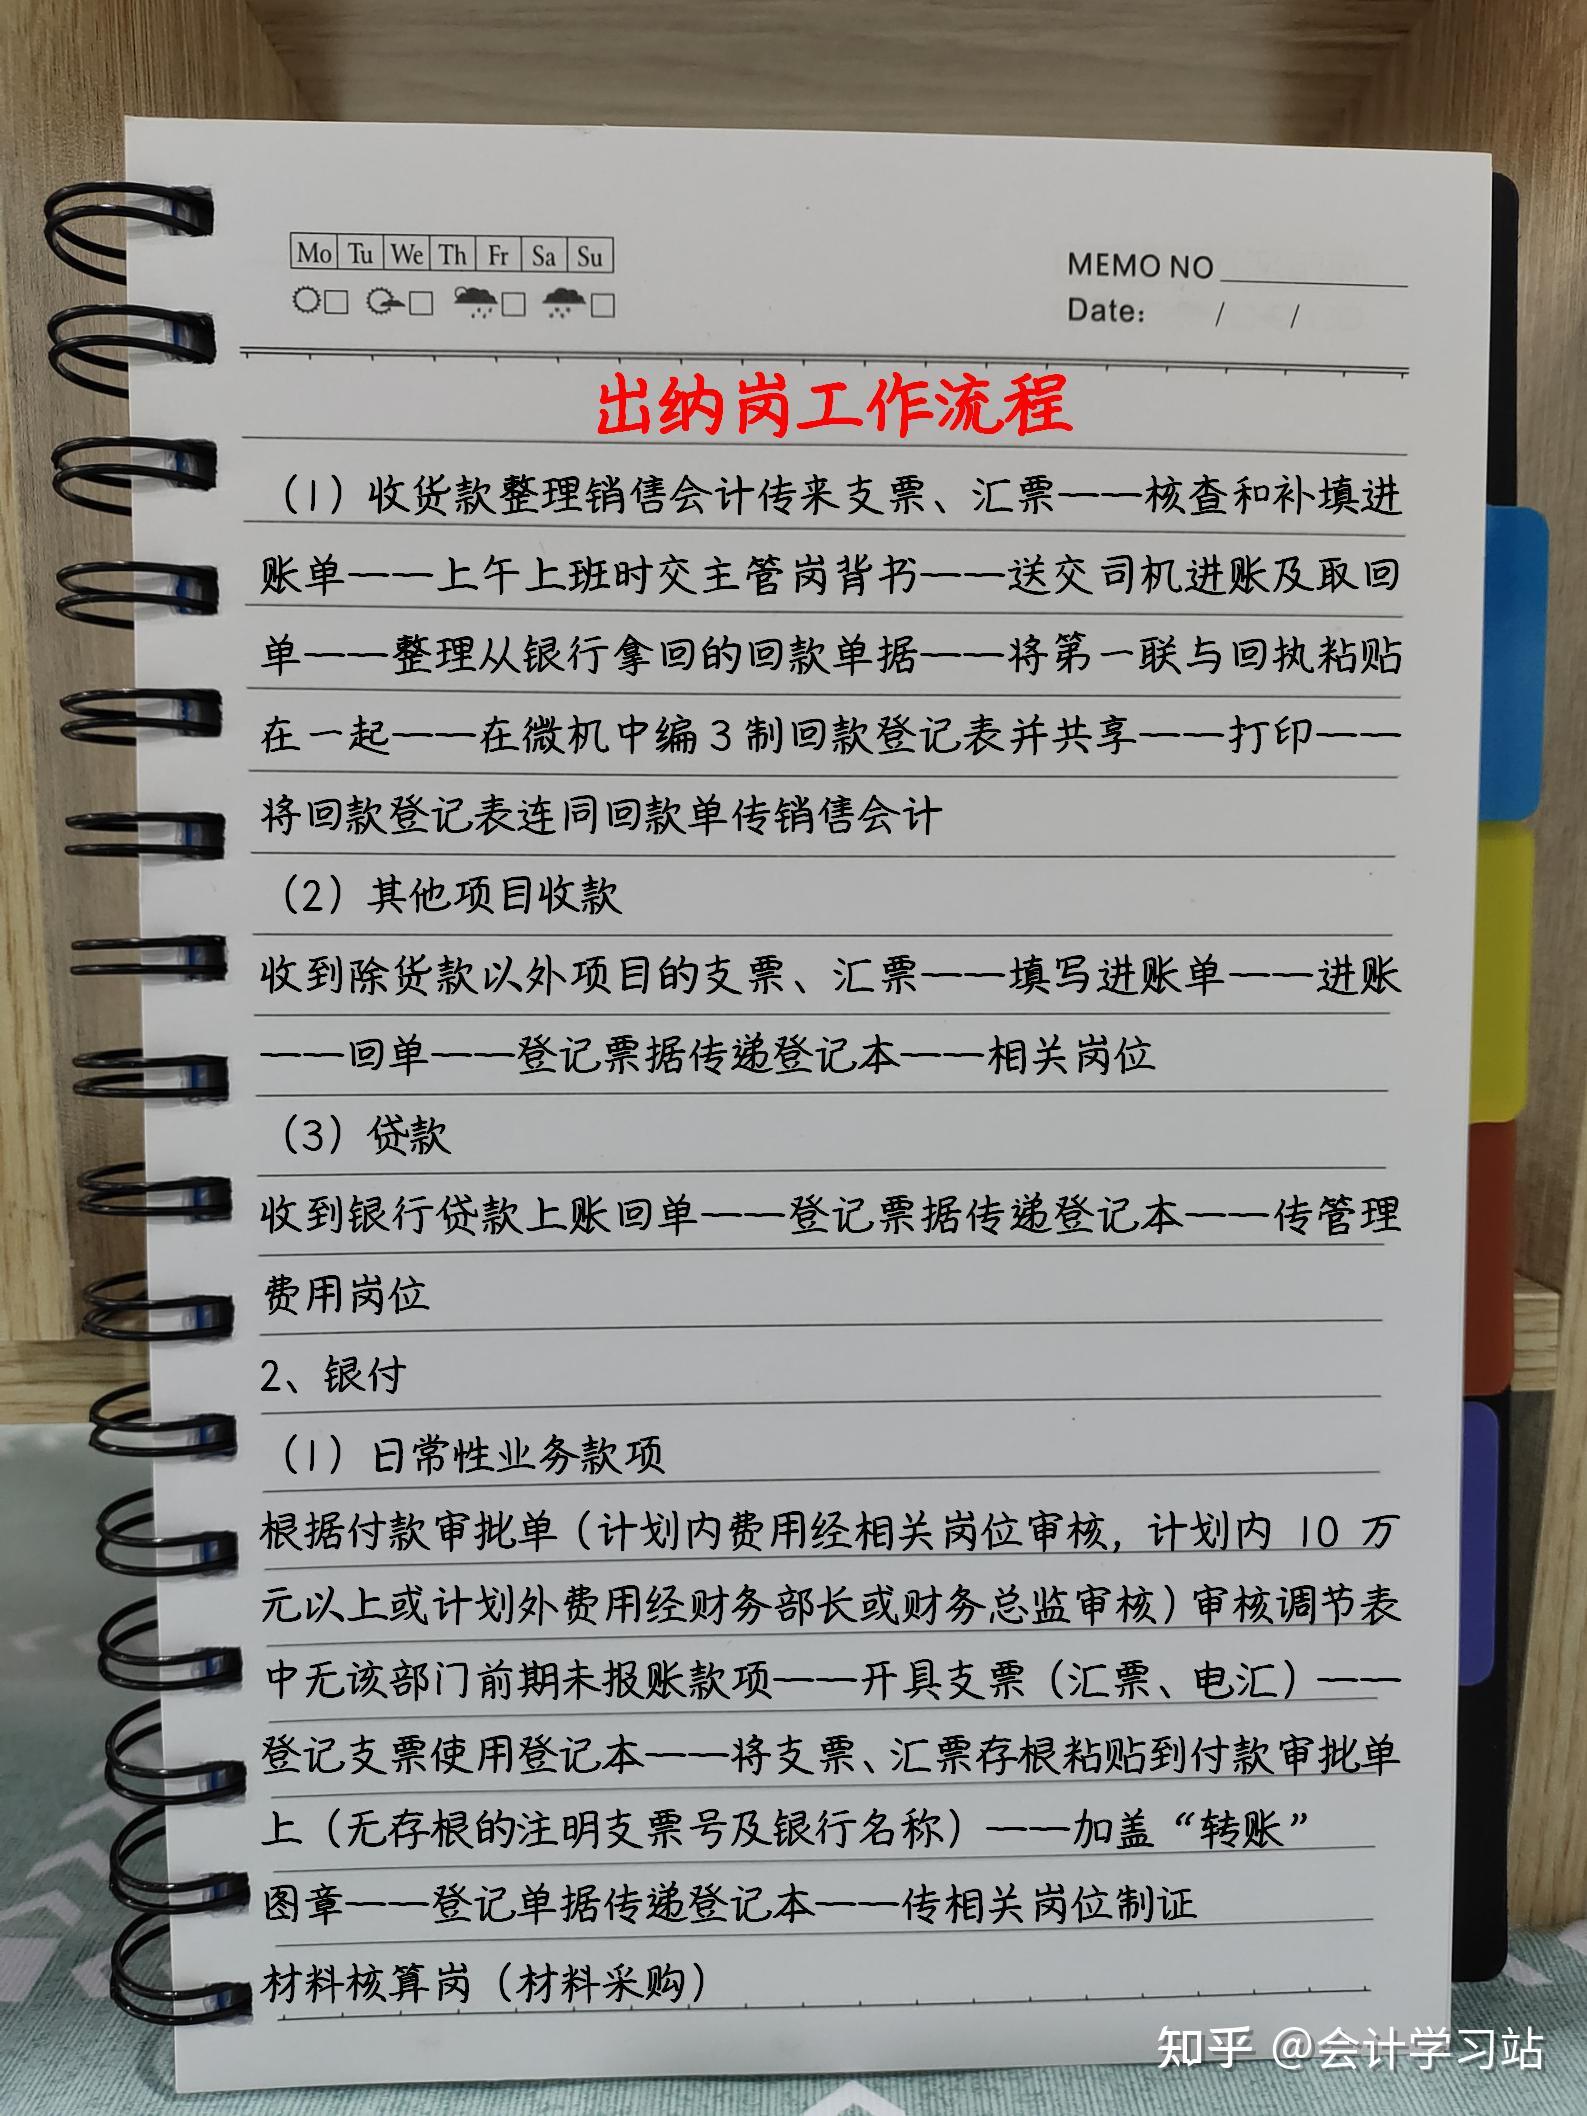 Mo Tu We Th Fr Sa Su
MEMO NO
Date: / /
出纳岗工作流程
（1）收货款整理销售会计传来支票、汇票——核查和补填进
账单——上午上班时交主管岗背书——送交司机进账及取回
单——整理从银行拿回的回款单据——将第一联与回执粘贴
在一起——在微机中编3制回款登记表并共享——打印——
将回款登记表连同回款单传销售会计
（2）其他项目收款
收到除货款以外项目的支票、汇票——填写进账单——进账
——回单——登记票据传递登记本——相关岗位
（3）贷款
收到银行贷款上账回单——登记票据传递登记本——传管理
费用岗位
2、银付
（1）日常性业务款项
根据付款审批单（计划内费用经相关岗位审核，计划内 10 万
元以上或计划外费用经财务部长或财务总监审核）审核调节表
中无该部门前期未报账款项——开具支票（汇票、电汇）——
登记支票使用登记本——将支票、汇票存根粘贴到付款审批单
上（无存根的注明支票号及银行名称）——加盖“转账”
图章——登记单据传递登记本——传相关岗位制证
材料核算岗（材料采购）
知乎 @会计学习站